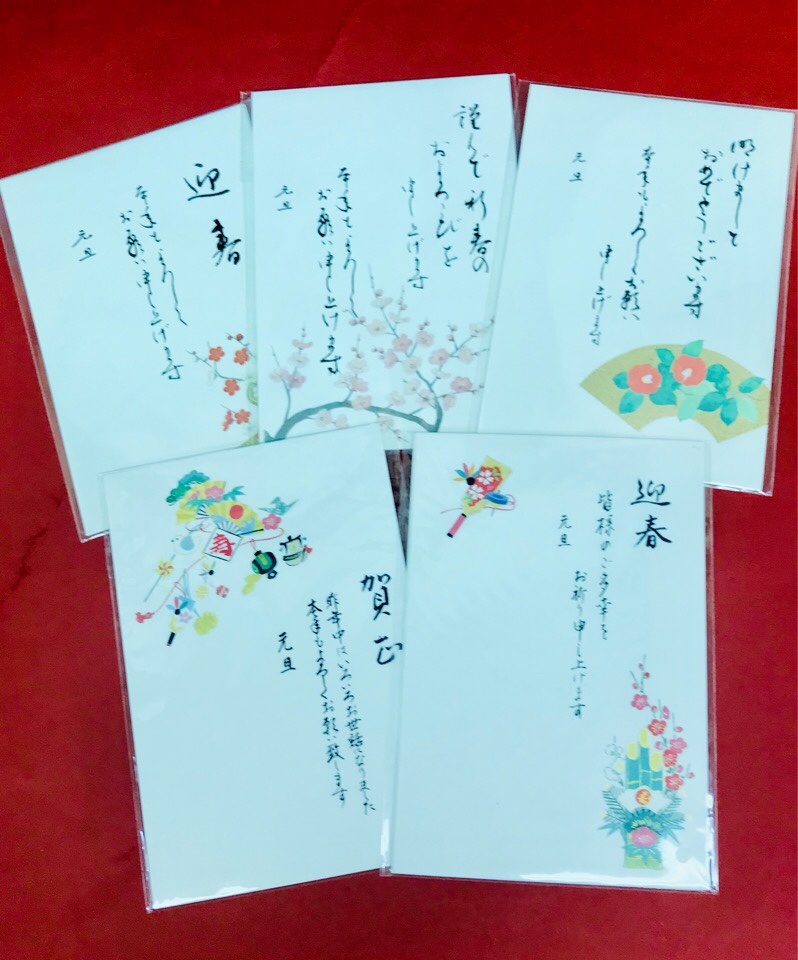 迎春
本年もよろしく
お願い申し上げます
元旦
謹んで新春の
およろこびを
申し上げます
本年もよろしく
お願い申し上げます
元旦
明けまして
おめでとうございます
本年もよろしくお願い
申し上げます
元旦
賀正
昨年中はいろいろお世話になりました
本年もよろしくお願い致します
元旦
寿
迎春
皆様のご多幸を
お祈り申し上げます
元旦